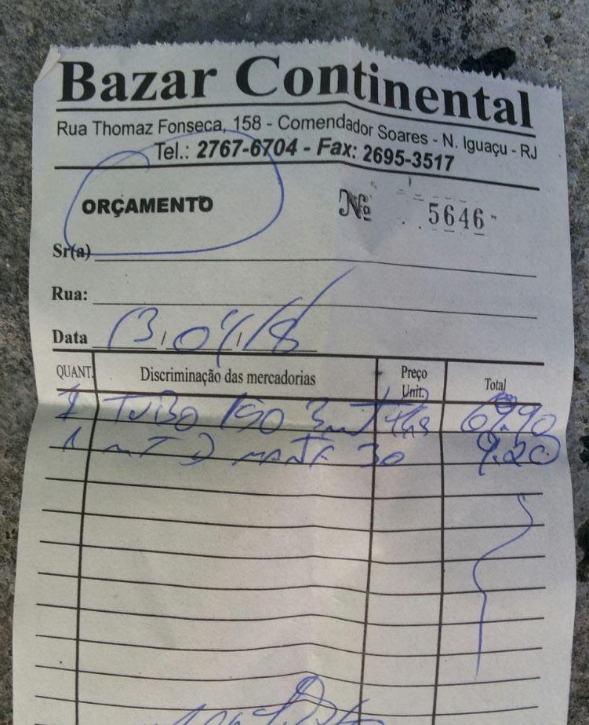 Bazar Continental
Rua Thomaz Fonseca, 158 - Comendador Soares - N. Iguaçu - RJ
Tel.: 2767-6704 - Fax: 2695-3517
ORÇAMENTO Nº 5646
Sr(a)
Rua:
Data 13/04/18
QUANT. Discriminação das mercadorias Preço Unit. Total
1 TUBO 150 3mt
1 MT D MANTA 30 9.20